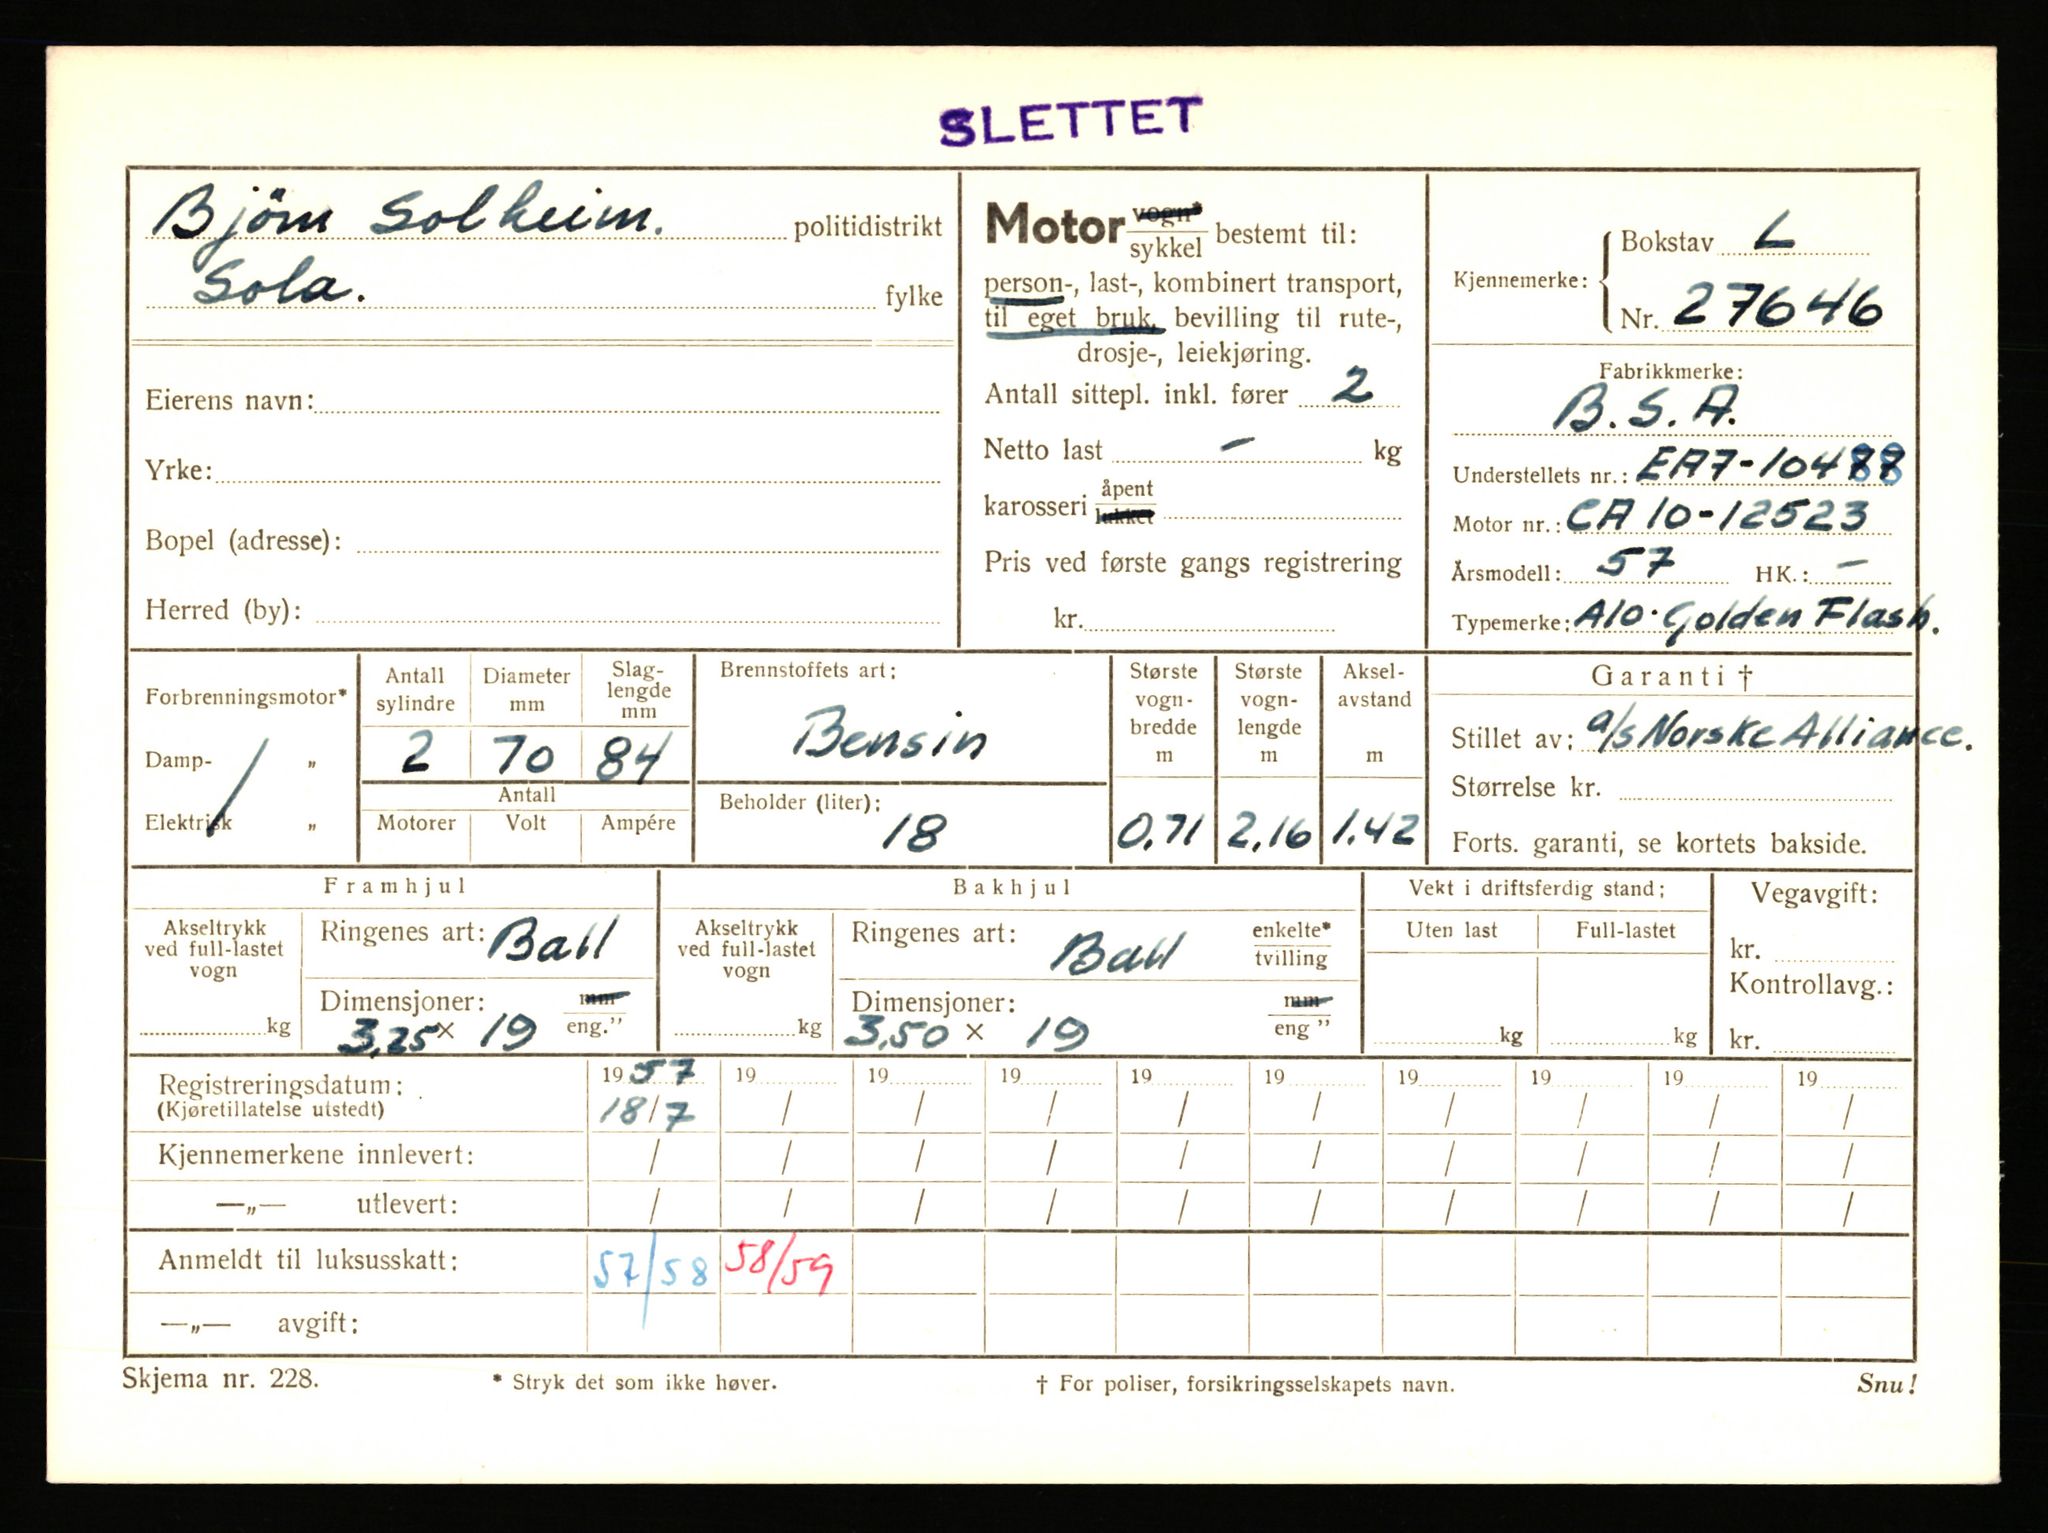 SLETTET
Bjørn Solheim. politidistrikt
Sola. fylke
Eierens navn:
Yrke:
Bopel (adresse):
Herred (by):
Motor vogn*/sykkel bestemt til:
person-, last-, kombinert transport,
til eget bruk, bevilling til rute-,
drosje-, leiekjøring.
Antall sittepl. inkl. fører 2
Netto last - kg
karosseri åpent/lukket
Pris ved første gangs registrering
kr.
Kjennemerke: Bokstav L
Nr. 27646
Fabrikkmerke:
B.S.A.
Understellets nr.: EA7-10488
Motor nr.: CA10-12523
Årsmodell: 57 HK.: -
Typemerke: A10 · Golden Flash.
Forbrenningsmotor*
Damp- „
Elektrisk „
Antall sylindre 2
Diameter mm 70
Slaglengde mm 84
Antall
Motorer Volt Ampére
Brennstoffets art:
Bensin
Beholder (liter):
18
Største vogn-bredde m 0,71
Største vogn-lengde m 2,16
Aksel-avstand m 1.42
Garanti †
Stillet av: a/s Norske Alliance.
Størrelse kr.
Forts. garanti, se kortets bakside.
Framhjul
Akseltrykk ved full-lastet vogn kg
Ringenes art: Ball
Dimensjoner: mm
3,25 × 19 eng."
Bakhjul
Akseltrykk ved full-lastet vogn kg
Ringenes art: Ball enkelte*/tvilling
Dimensjoner: mm
3,50 × 19 eng "
Vekt i driftsferdig stand:
Uten last Full-lastet
kg kg
Vegavgift:
kr.
Kontrollavg.:
kr.
Registreringsdatum: 1957 19 19 19 19 19 19 19 19 19
(Kjøretillatelse utstedt) 18/7 / / / / / / / / /
Kjennemerkene innlevert: / / / / / / / / / /
—„— utlevert: / / / / / / / / / /
Anmeldt til luksusskatt: 57/58 58/59
—„— avgift:
Skjema nr. 228. * Stryk det som ikke høver. † For poliser, forsikringsselskapets navn. Snu!